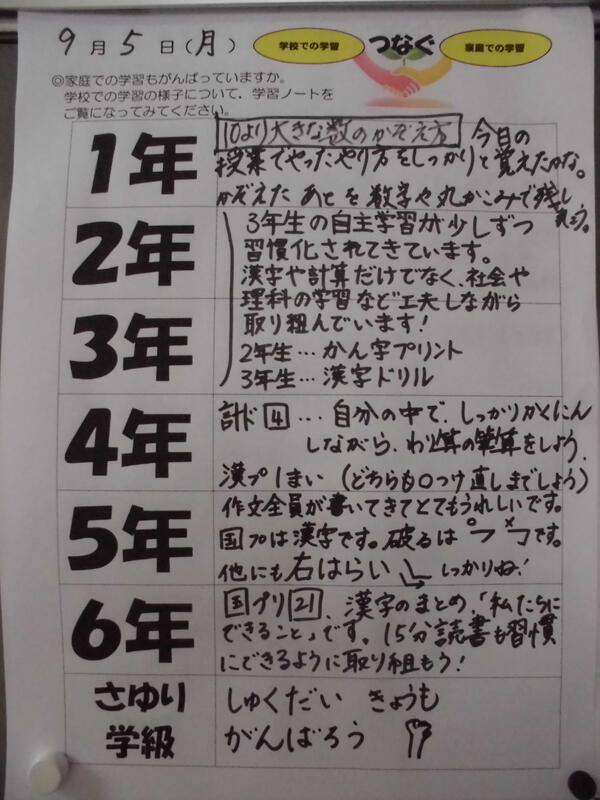 9月5日(月)
学校での学習 つなぐ 家庭での学習
◎家庭での学習もがんばっていますか。
学校での学習の様子について、学習ノートを
ご覧になってみてください。
1年
10より大きな数のかぞえ方 今日の
授業でやったやり方をしっかりと覚えたかな。
かぞえたあとを数字や丸がこみで残し
ましょう。
2年
3年
3年生の自主学習が少しずつ
習慣化されてきています。
漢字や計算だけでなく、社会や
理科の学習など工夫しながら
取り組んでいます!
2年生…かん字プリント
3年生…漢字ドリル
4年
計ド4…自分の中で、しっかりかくにん
しながら、わり算の筆算をしよう。
漢プ1まい(どちらも○つけ直しまでしよう)
5年
作文全員が書いてきてとてもうれしいです。
国プは漢字です。破るは
です。
他にも右はらい しっかりね!
6年
国プリ21、漢字のまとめ、「私たちに
できること」です。15分読書も習慣
にできるように取り組もう!
さゆり
学級
しゅくだい きょうも
がんばろう